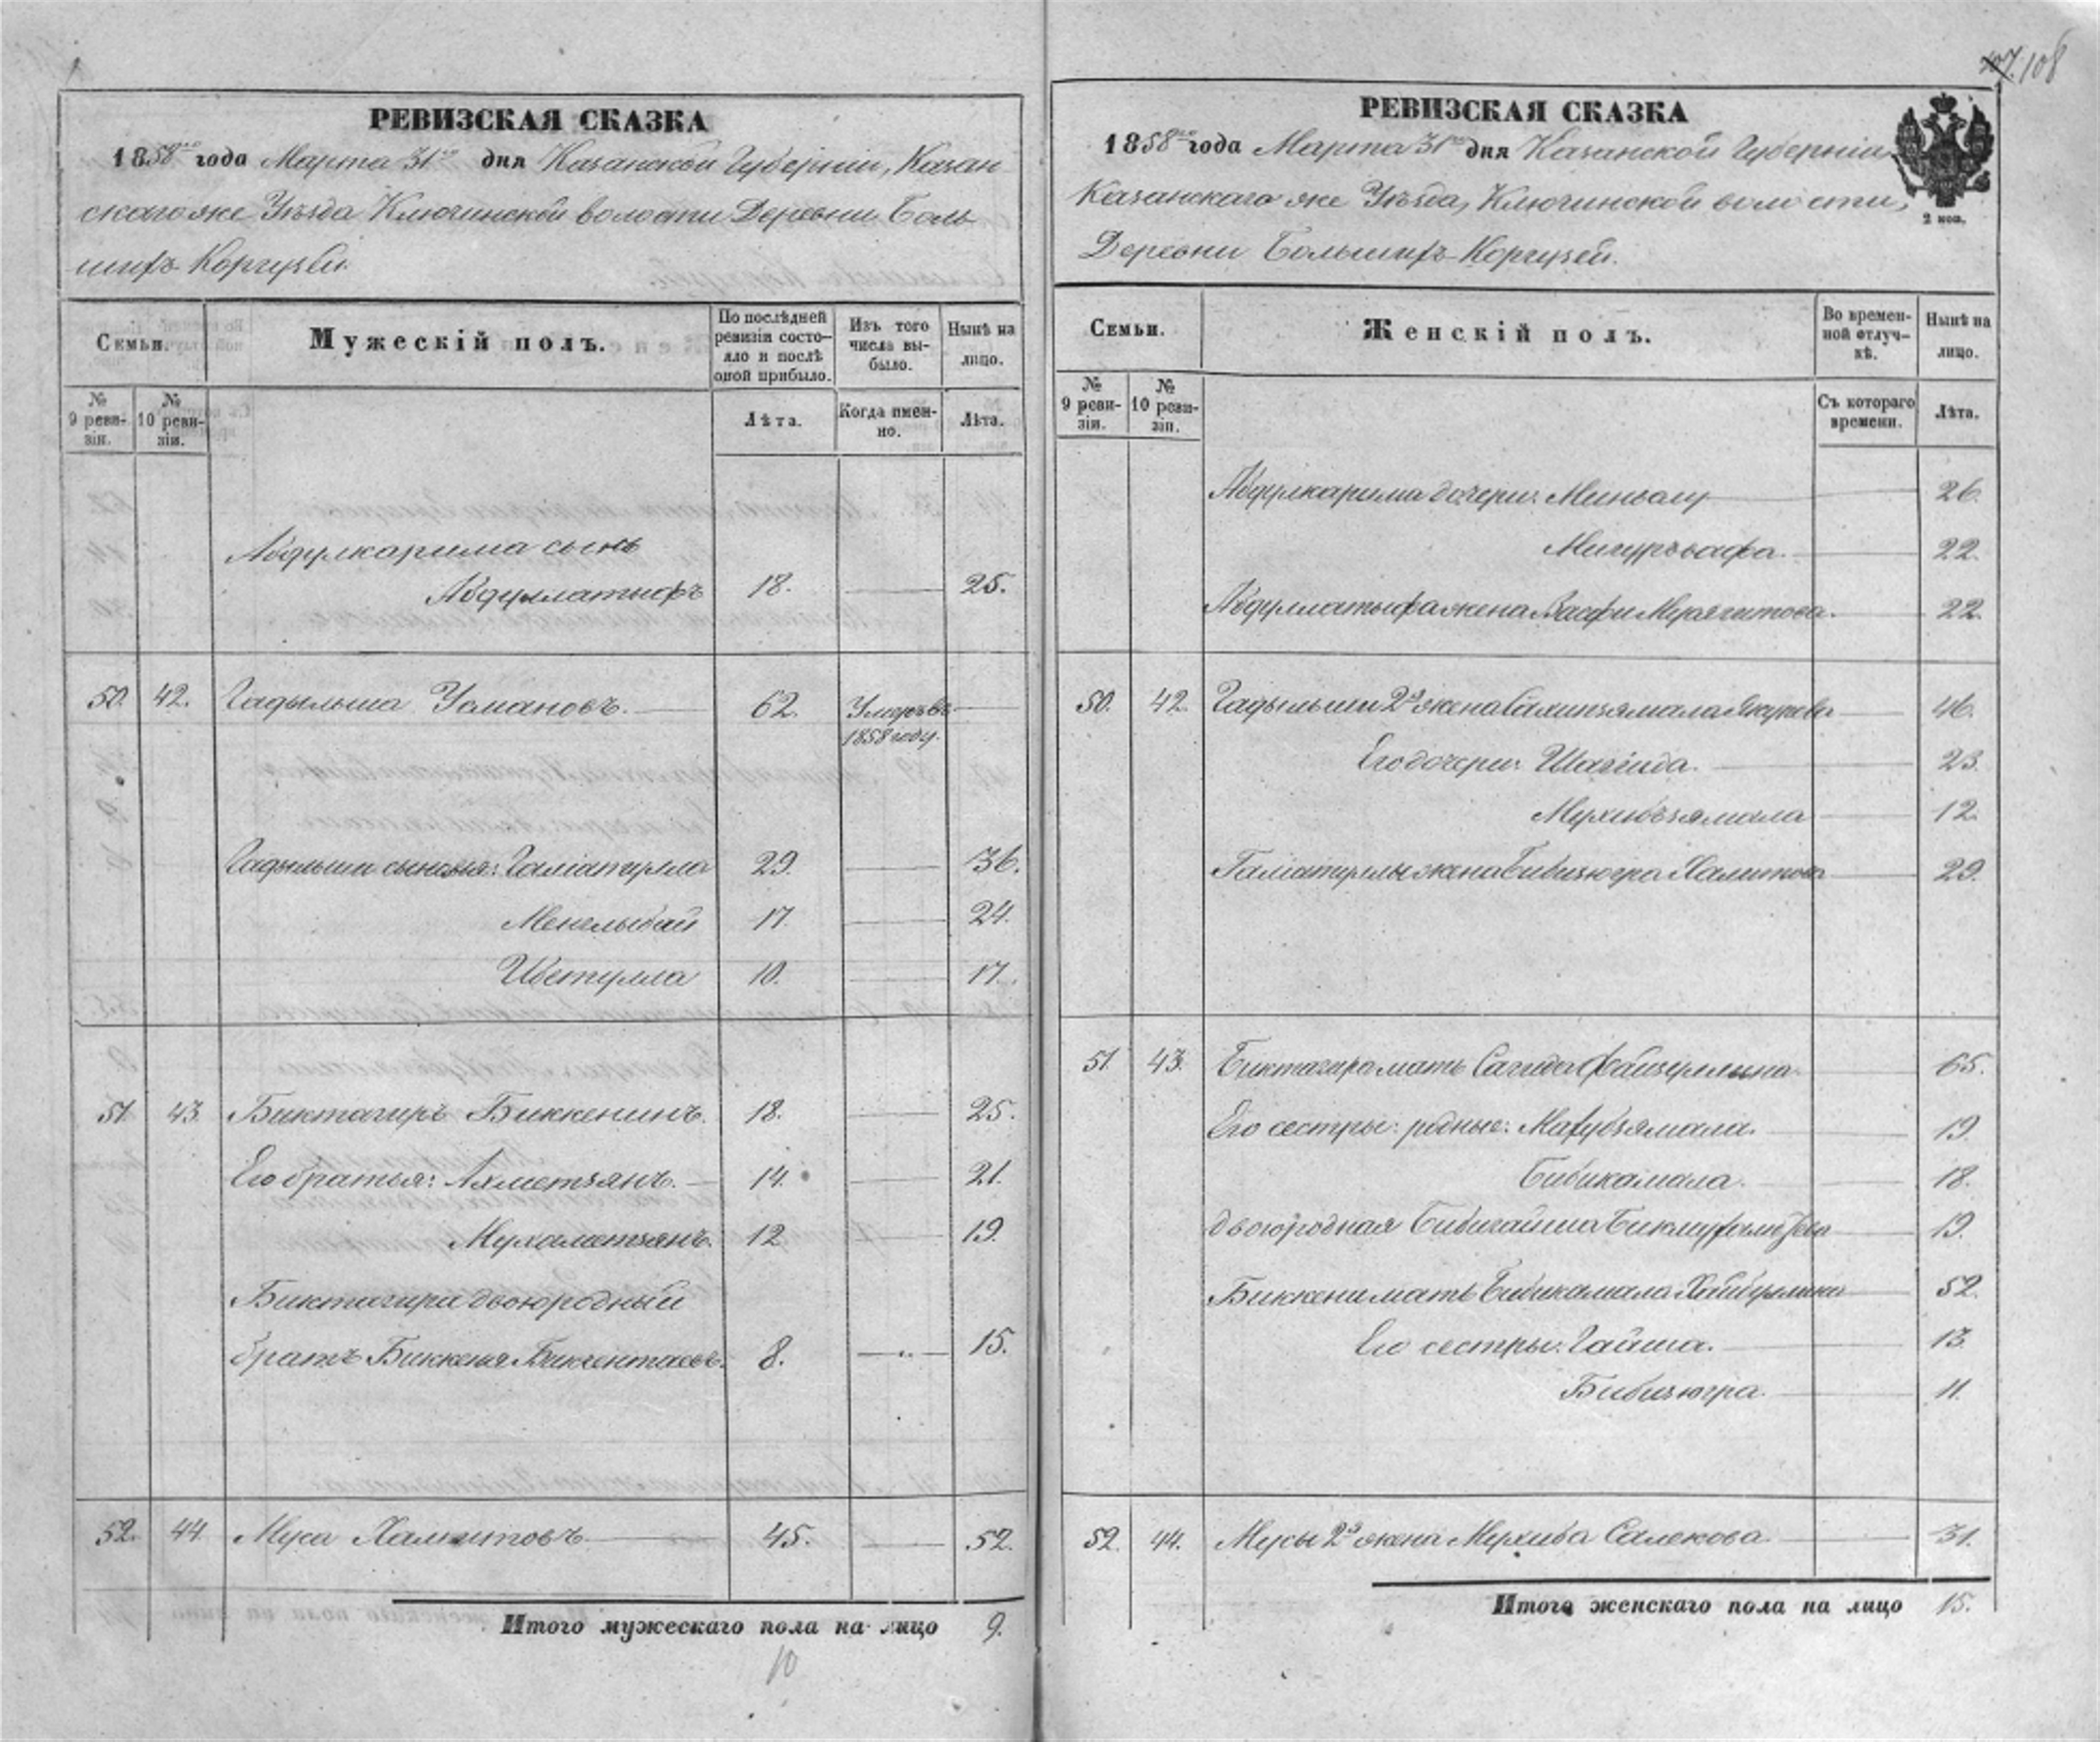 107. 108
РЕВИЗСКАЯ СКАЗКА
1858го года Марта 31го дня Казанской Губерніи, Казан
скаго же Уѣзда Ключинской волости Деревни Боль
шихъ Коргузей.
Семьи.
Мужескій полъ.
По послѣдней ревизіи состояло и послѣ оной прибыло.
Изъ того числа выбыло.
Нынѣ на лицо.
№ 9 ревизіи.
№ 10 ревизіи.
Лѣта.
Когда именно.
Лѣта.
Абдулкарима сынъ
Абдуллатыфъ 18. 25.
50. 42. Гадыльша Усмановъ. 62. Умеръ въ
1858 году.
Гадыльши сыновья: Галіатулла 29. 36.
Менглыбай 17. 24.
Ибетулла 10. 17.
51. 43. Биктагиръ Биккенинъ. 18. 25.
Его братья: Ахметзянъ. 14. 21.
Мухаметзянъ. 12. 19.
Биктагира двоюродный
братъ Биккеня 8. 15.
52. 44. Муса Халитовъ 45. 52.
Итого мужескаго пола на лицо 9.
10
РЕВИЗСКАЯ СКАЗКА
1858го года Марта 31го дня Казанской Губерніи
Казанскаго же Уѣзда, Ключинской волости,
Деревни Большихъ Коргузей.
2 коп.
Семьи.
Женскій полъ.
Во временной отлучкѣ.
Нынѣ на лицо.
№ 9 ревизіи.
№ 10 ревизіи.
Съ котораго времени.
Лѣта.
Абдулкарима дочери: 26.
22.
Абдуллатыфа жена Васфи 22.
50. 42. Гадыльши 2я жена 46.
Его дочери: Шагида. 23.
Мухибзямала 12.
Галіатуллы жена Бибизюгра Халитова 29.
51. 43. Биктагира мать Сагида Фейзуллина 65.
Его сестры: родныя: Махубзямала. 19.
Бибикамала. 18.
двоюродная Бибигайша 19.
Биккени мать Бибикамала Хабибуллина 52.
Его сестры: Гайша. 13.
Бибизюгра. 11.
52. 44. Мусы 2я жена Мухиба Салекова 31.
Итого женскаго пола на лицо 15.